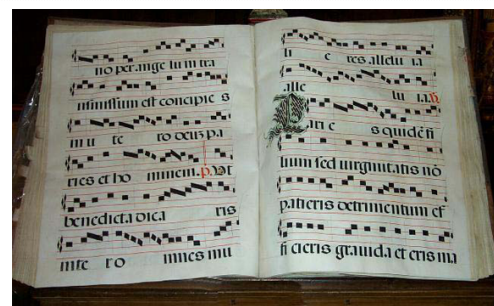 no per ange lu m tra
missum est concipie s
in u te ro deum pa
ries et ho minem. p. Vt
benedicta dica ris
inte r o mnes mu
li e res. allelu ia
alle lu ia. v.
Pari e s quidē fi
lium sed uirginitatis nō
patieris detrimentum ef
fi cieris grauida et eris ma